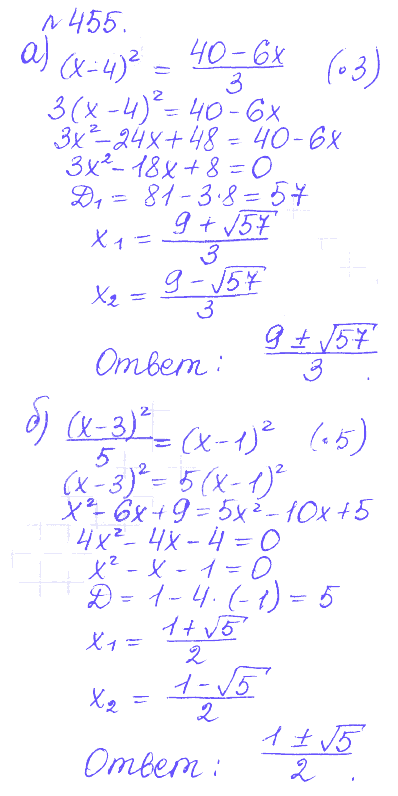 № 455.
а) (x-4)² = (40-6x)/3 (·3)
3(x-4)² = 40-6x
3x²-24x+48 = 40-6x
3x²-18x+8=0
Д₁ = 81-3·8=57
x₁ = (9+√57)/3
x₂ = (9-√57)/3
Ответ: (9±√57)/3.
б) (x-3)²/5 = (x-1)² (·5)
(x-3)² = 5(x-1)²
x²-6x+9=5x²-10x+5
4x²-4x-4=0
x²-x-1=0
Д = 1-4·(-1)=5
x₁ = (1+√5)/2
x₂ = (1-√5)/2
Ответ: (1±√5)/2.